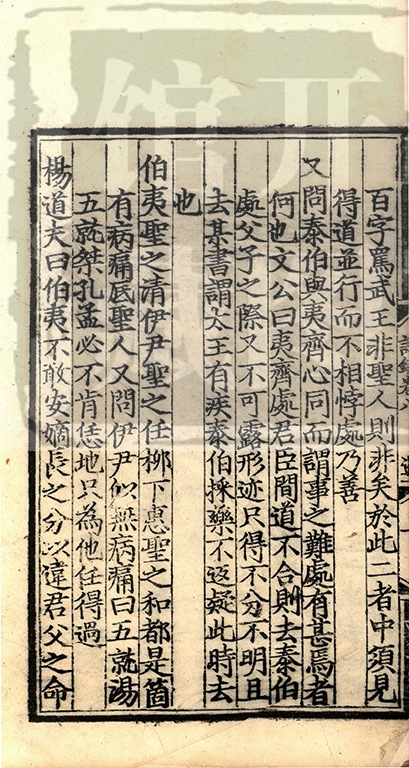 百字罵武王非聖人則非矣於此二者中須見
得道並行而不相悖處乃善
又問泰伯與夷齊心同而謂事之難處有甚焉者
何也文公曰夷齊處君臣間道不合則去泰伯
處父子之際又不可露形迹只得不分不明且
去某書謂太王有疾泰伯採藥不返疑此時去
也
伯夷聖之清伊尹聖之任柳下惠聖之和都是箇
有病痛底聖人又問伊尹似無病痛曰五就湯
五就桀孔孟必不肯恁地只為他任得過
楊道夫曰伯夷不敢安嫡長之分以違君父之命